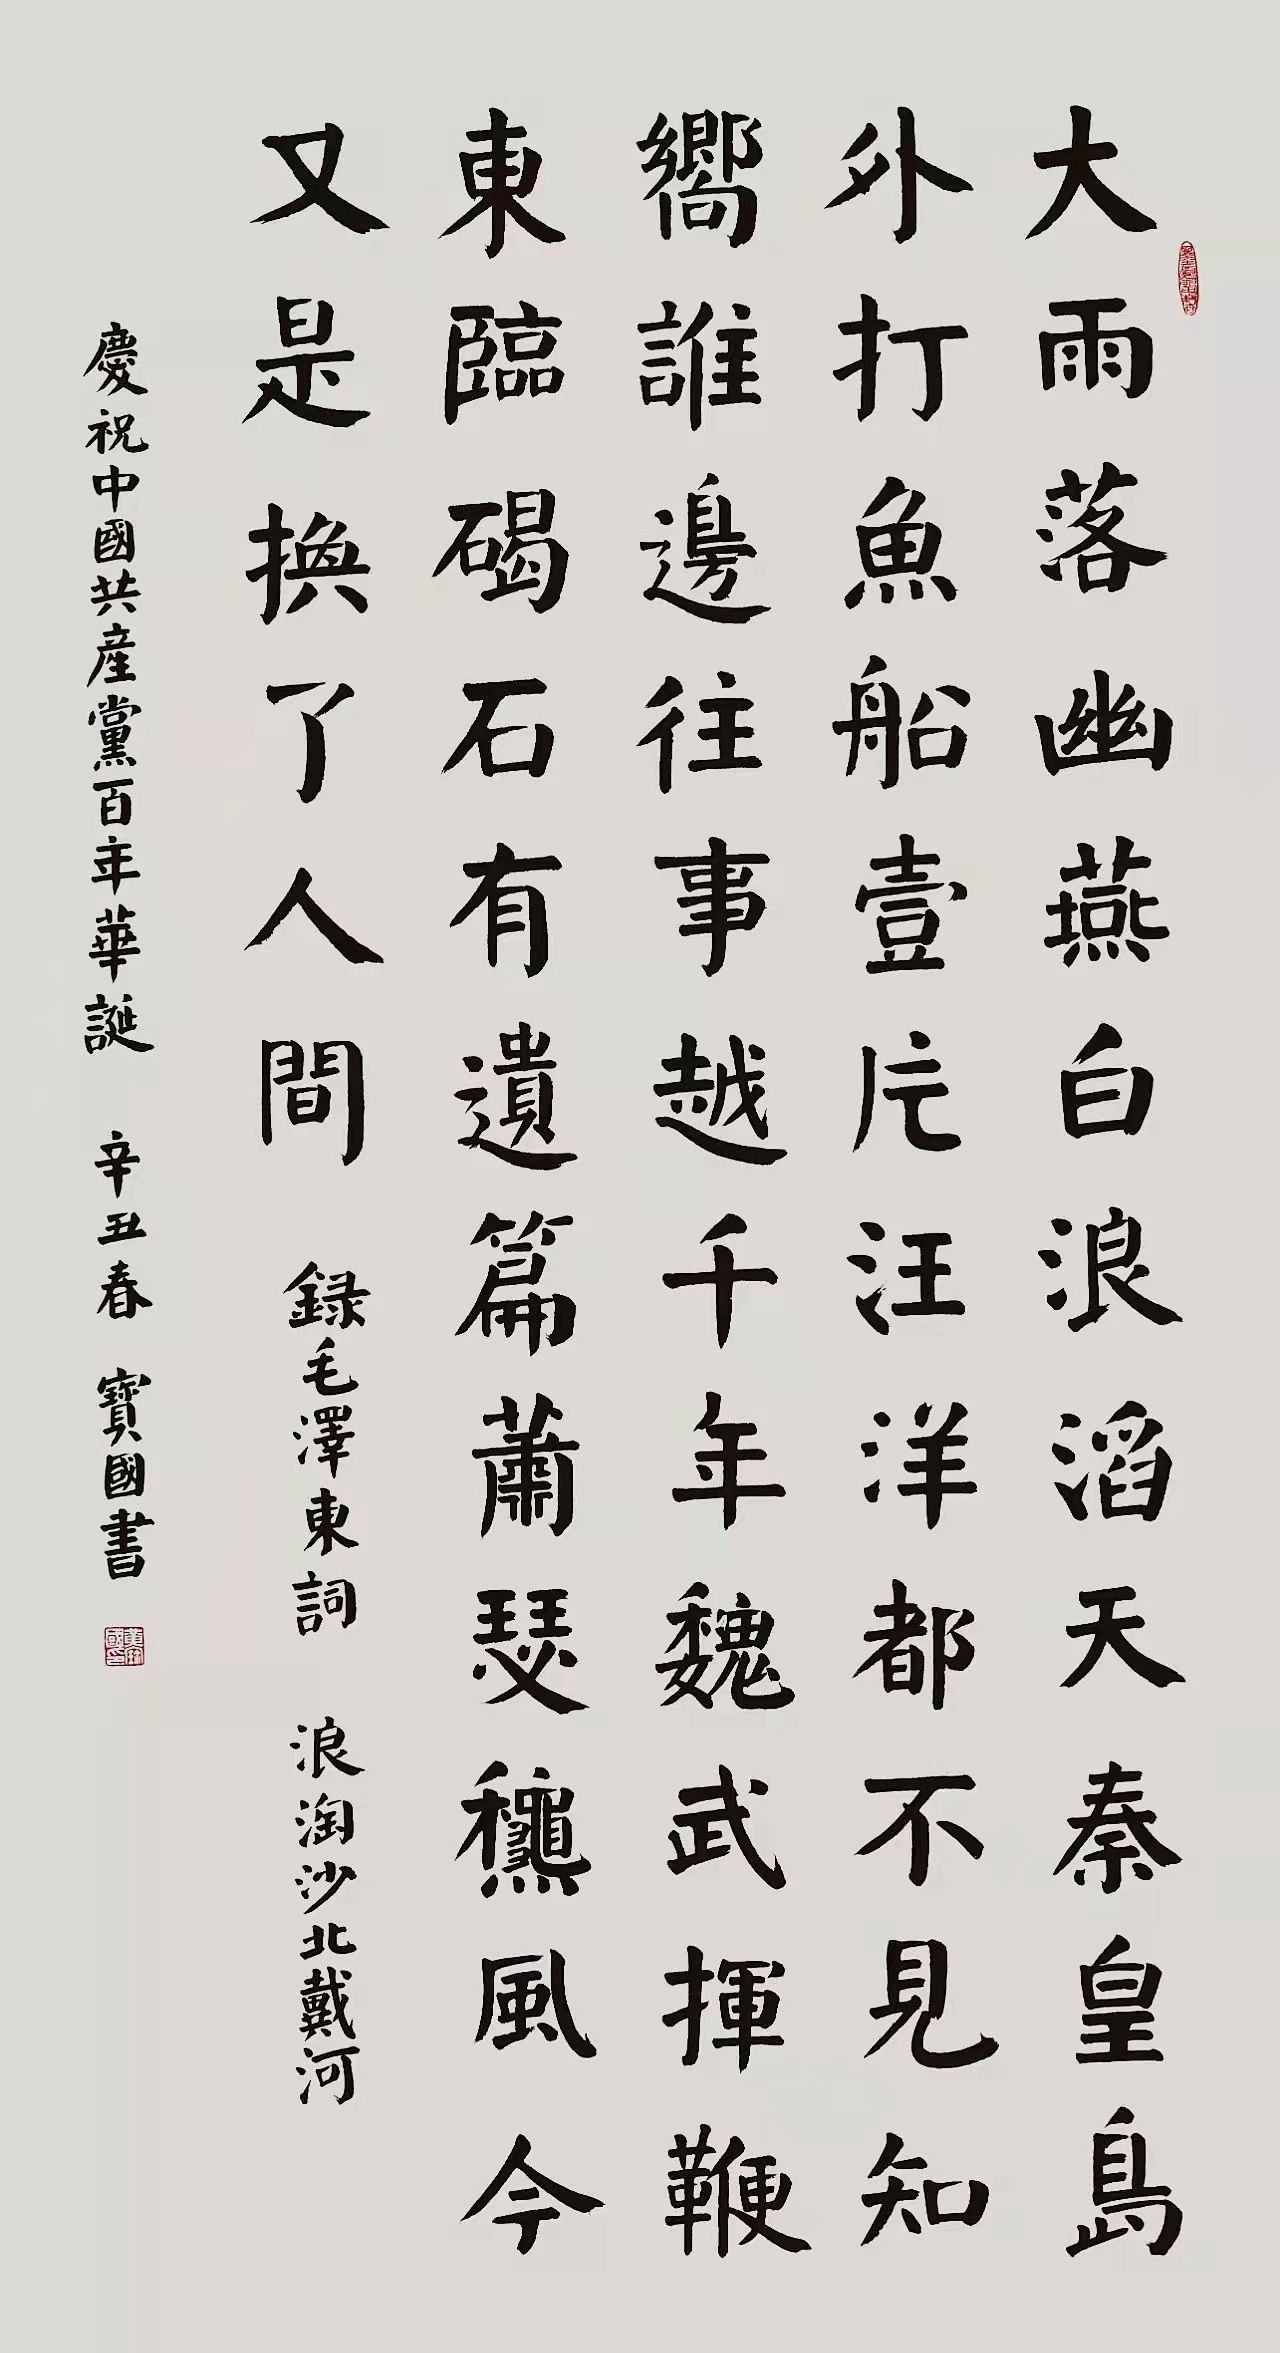 大雨落幽燕白浪滔天秦皇島
外打魚船壹片汪洋都不見知
嚮誰邊往事越千年魏武揮鞭
東臨碣石有遺篇蕭瑟龝風今
又是換了人間
録毛澤東詞 浪淘沙北戴河
慶祝中國共産黨百年華誕 辛丑春 寶國書